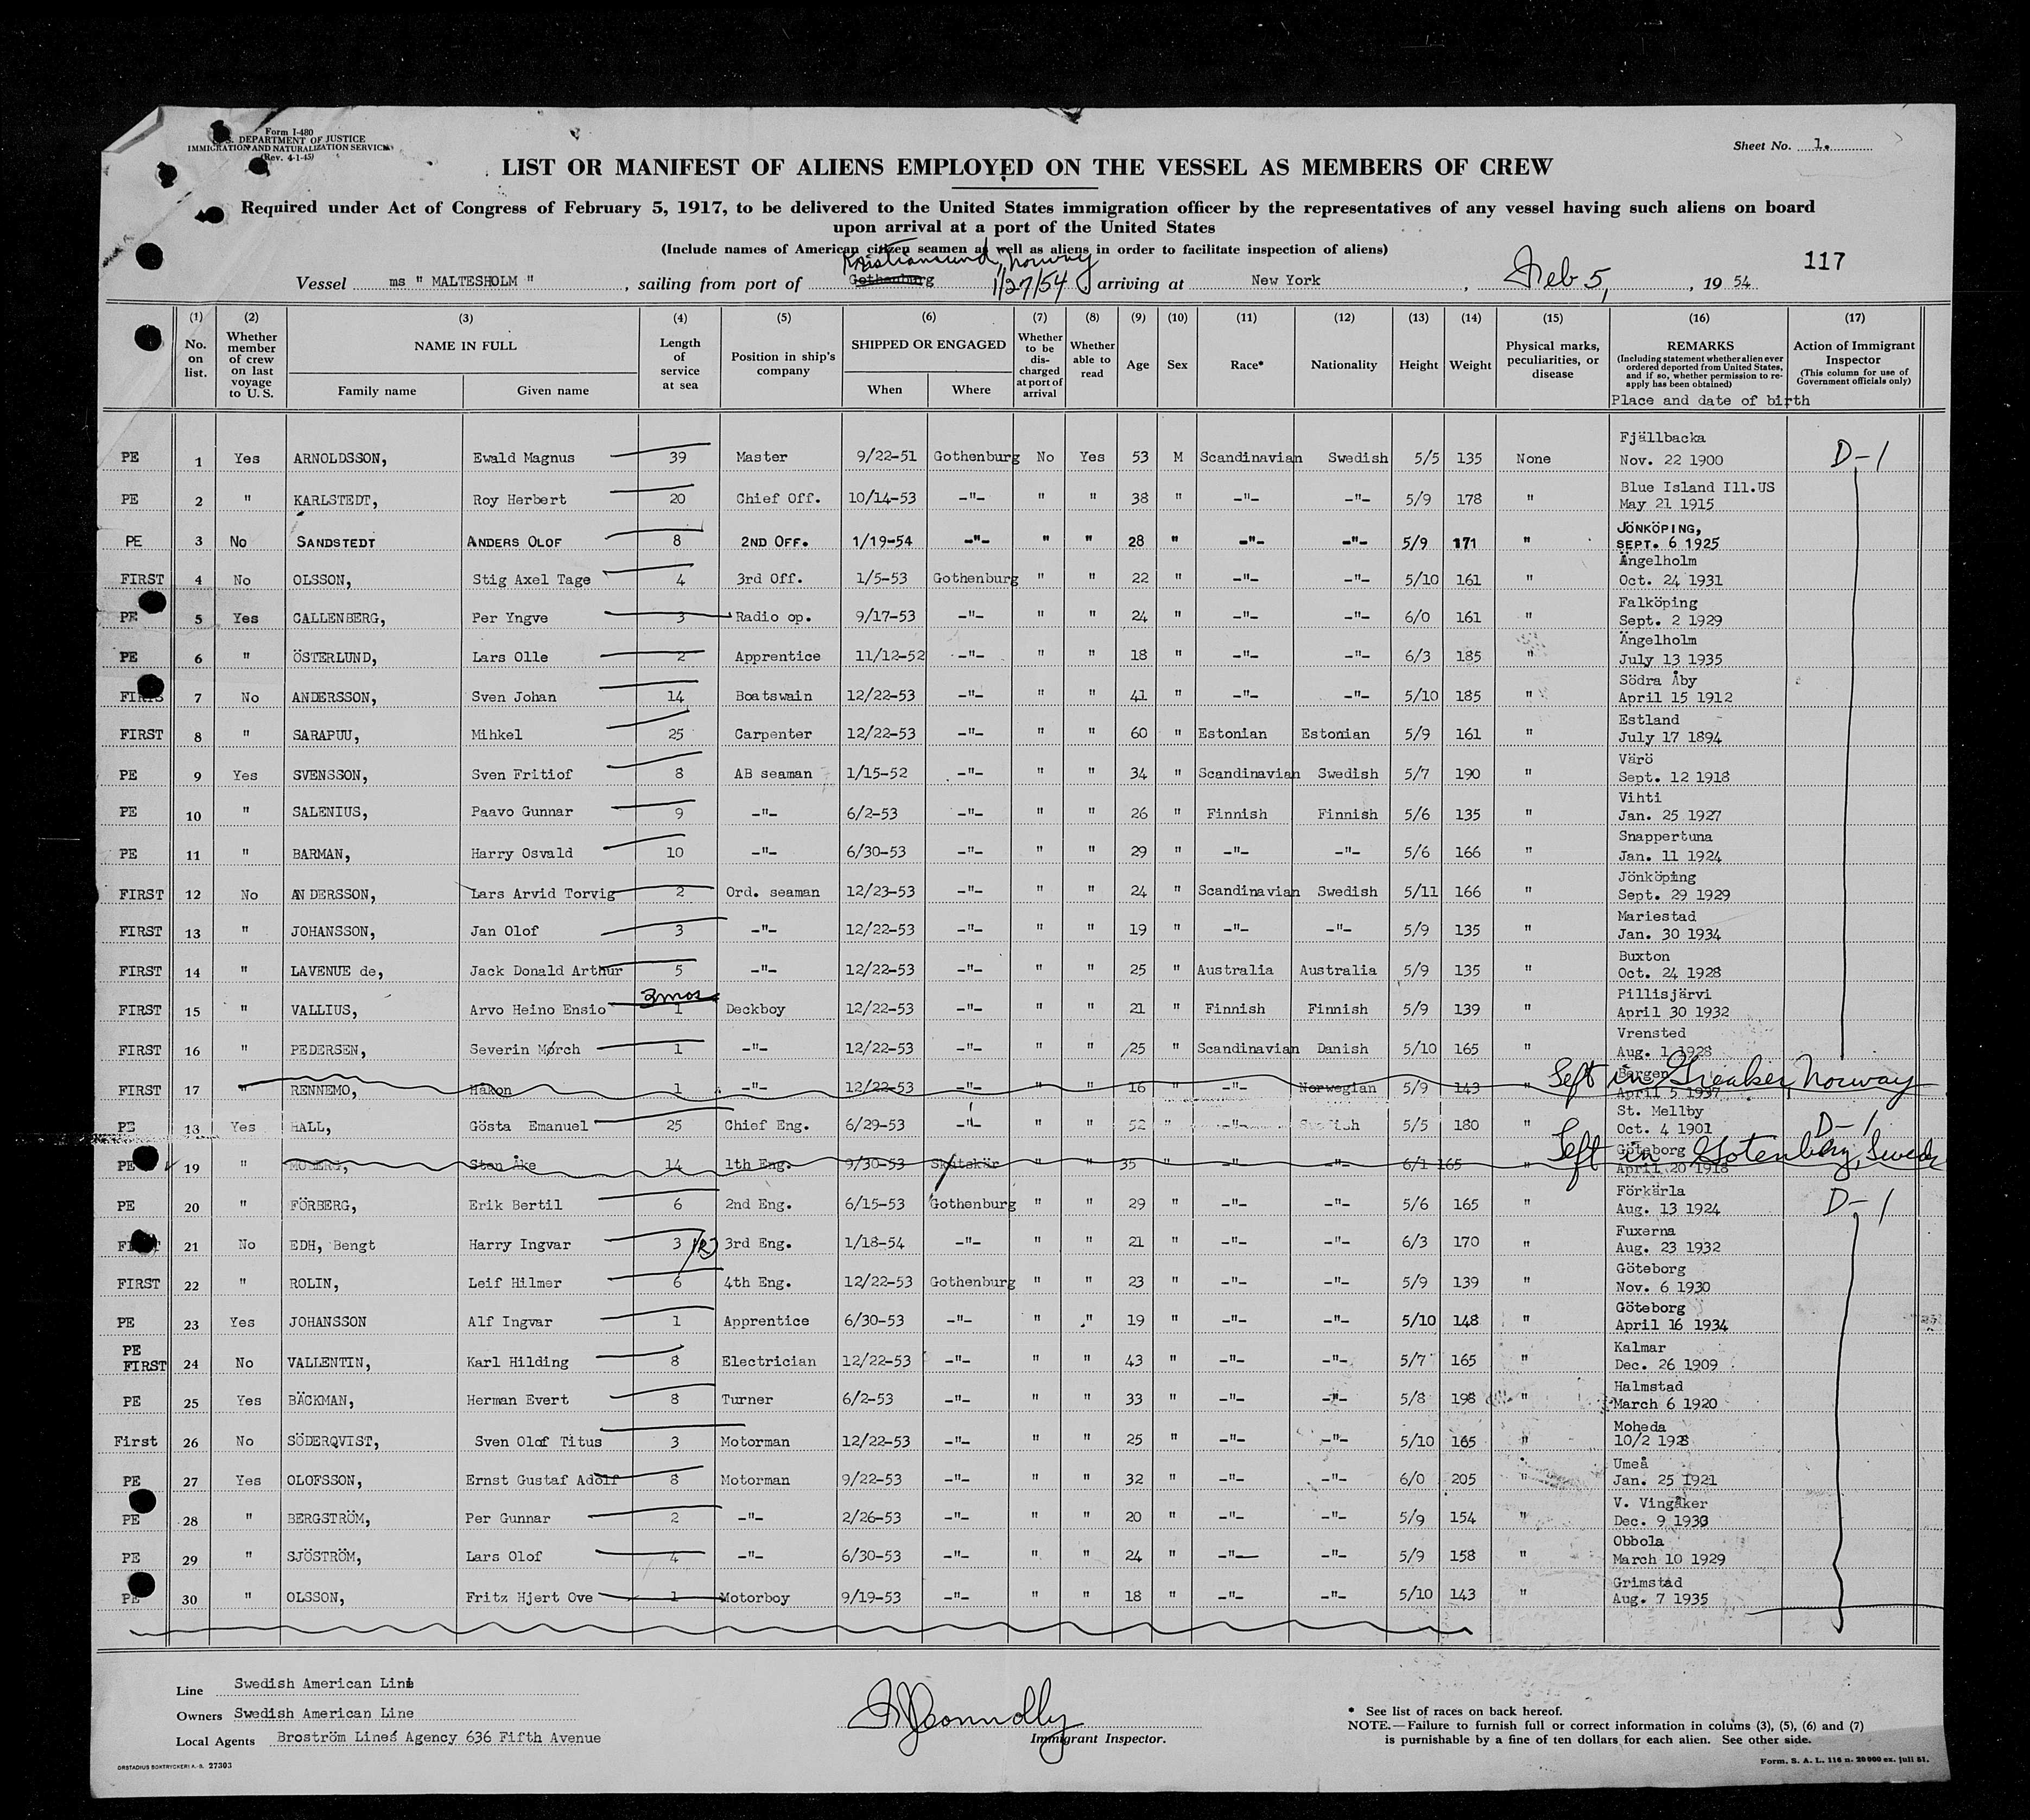 Form I-480
U. S. DEPARTMENT OF JUSTICE
IMMIGRATION AND NATURALIZATION SERVICE
(Rev. 4-1-45)
Sheet No. 1.
LIST OR MANIFEST OF ALIENS EMPLOYED ON THE VESSEL AS MEMBERS OF CREW
Required under Act of Congress of February 5, 1917, to be delivered to the United States immigration officer by the representatives of any vessel having such aliens on board
upon arrival at a port of the United States
(Include names of American citizen seamen as well as aliens in order to facilitate inspection of aliens)
117
Kristiansund, Norway
Vessel ms " MALTESHOLM ", sailing from port of Gothenburg 1/27/54 arriving at New York, Feb 5, , 19 54
(1) (2) (3) (4) (5) (6) (7) (8) (9) (10) (11) (12) (13) (14) (15) (16) (17)
No. on list. Whether member of crew on last voyage to U. S. NAME IN FULL Family name Given name Length of service at sea Position in ship's company SHIPPED OR ENGAGED When Where Whether to be discharged at port of arrival Whether able to read Age Sex Race* Nationality Height Weight Physical marks, peculiarities, or disease REMARKS (Including statement whether alien ever ordered deported from United States, and if so, whether permission to reapply has been obtained) Action of Immigrant Inspector (This column for use of Government officials only)
Place and date of birth
PE 1 Yes ARNOLDSSON, Ewald Magnus 39 Master 9/22-51 Gothenburg No Yes 53 M Scandinavian Swedish 5/5 135 None Fjällbacka Nov. 22 1900 D-1
PE 2 " KARLSTEDT, Roy Herbert 20 Chief Off. 10/14-53 -"- " " 38 " -"- -"- 5/9 178 " Blue Island Ill.US May 21 1915
PE 3 No SANDSTEDT ANDERS OLOF 8 2ND OFF. 1/19-54 -"- " " 28 " -"- -"- 5/9 171 " JÖNKÖPING, SEPT. 6 1925
FIRST 4 No OLSSON, Stig Axel Tage 4 3rd Off. 1/5-53 Gothenburg " " 22 " -"- -"- 5/10 161 " Ängelholm Oct. 24 1931
PE 5 Yes CALLENBERG, Per Yngve 3 Radio op. 9/17-53 -"- " " 24 " -"- -"- 6/0 161 " Falköping Sept. 2 1929
PE 6 " ÖSTERLUND, Lars Olle 2 Apprentice 11/12-52 -"- " " 18 " -"- -"- 6/3 185 " Ängelholm July 13 1935
FIRS 7 No ANDERSSON, Sven Johan 14 Boatswain 12/22-53 -"- " " 41 " -"- -"- 5/10 185 " Södra Åby April 15 1912
FIRST 8 " SARAPUU, Mihkel 25 Carpenter 12/22-53 -"- " " 60 " Estonian Estonian 5/9 161 " Estland July 17 1894
PE 9 Yes SVENSSON, Sven Fritiof 8 AB seaman 1/15-52 -"- " " 34 " Scandinavian Swedish 5/7 190 " Värö Sept. 12 1918
PE 10 " SALENIUS, Paavo Gunnar 9 -"- 6/2-53 -"- " " 26 " Finnish Finnish 5/6 135 " Vihti Jan. 25 1927
PE 11 " BARMAN, Harry Osvald 10 -"- 6/30-53 -"- " " 29 " -"- -"- 5/6 166 " Snappertuna Jan. 11 1924
FIRST 12 No ANDERSSON, Lars Arvid Torvig 2 Ord. seaman 12/23-53 -"- " " 24 " Scandinavian Swedish 5/11 166 " Jönköping Sept. 29 1929
FIRST 13 " JOHANSSON, Jan Olof 3 -"- 12/22-53 -"- " " 19 " -"- -"- 5/9 135 " Mariestad Jan. 30 1934
FIRST 14 " LAVENUE de, Jack Donald Arthur 5 -"- 12/22-53 -"- " " 25 " Australia Australia 5/9 135 " Buxton Oct. 24 1928
FIRST 15 " VALLIUS, Arvo Heino Ensio 3mos 1 Deckboy 12/22-53 -"- " " 21 " Finnish Finnish 5/9 139 " Pillisjärvi April 30 1932
FIRST 16 " PEDERSEN, Severin Mørch 1 -"- 12/22-53 -"- " " 25 " Scandinavian Danish 5/10 165 " Vrensted Aug. 1 1928
FIRST 17 " RENNEMO, Håkon 1 -"- 12/22-53 -"- " " 16 " -"- Norwegian 5/9 143 " Bergen April 5 1937 Left in Greaker, Norway
PE 13 Yes HALL, Gösta Emanuel 25 Chief Eng. 6/29-53 -"- " " 52 " -"- Swedish 5/5 180 " St. Mellby Oct. 4 1901 D-1
PE 19 " MOBERG, Sten Åke 14 1th Eng. 9/30-53 Skutskär " " 35 " -"- -"- 6/1 165 " Göteborg April 20 1918 Left in Gotenberg, Sweden
PE 20 " FÖRBERG, Erik Bertil 6 2nd Eng. 6/15-53 Gothenburg " " 29 " -"- -"- 5/6 165 " Förkärla Aug. 13 1924 D-1
FIRST 21 No EDH, Bengt Harry Ingvar 3 1/2 3rd Eng. 1/18-54 -"- " " 21 " -"- -"- 6/3 170 " Fuxerna Aug. 23 1932
FIRST 22 " ROLIN, Leif Hilmer 6 4th Eng. 12/22-53 Gothenburg " " 23 " -"- -"- 5/9 139 " Göteborg Nov. 6 1930
PE 23 Yes JOHANSSON Alf Ingvar 1 Apprentice 6/30-53 -"- " " 19 " -"- -"- 5/10 148 " Göteborg April 16 1934
PE FIRST 24 No VALLENTIN, Karl Hilding 8 Electrician 12/22-53 -"- " " 43 " -"- -"- 5/7 165 " Kalmar Dec. 26 1909
PE 25 Yes BÄCKMAN, Herman Evert 8 Turner 6/2-53 -"- " " 33 " -"- -"- 5/8 198 " Halmstad March 6 1920
First 26 No SÖDERQVIST, Sven Olof Titus 3 Motorman 12/22-53 -"- " " 25 " -"- -"- 5/10 165 " Moheda 10/2 1928
PE 27 Yes OLOFSSON, Ernst Gustaf Adolf 8 Motorman 9/22-53 -"- " " 32 " -"- -"- 6/0 205 " Umeå Jan. 25 1921
PE 28 " BERGSTRÖM, Per Gunnar 2 -"- 2/26-53 -"- " " 20 " -"- -"- 5/9 154 " V. Vingåker Dec. 9 1933
PE 29 " SJÖSTRÖM, Lars Olof 4 -"- 6/30-53 -"- " " 24 " -"- -"- 5/9 158 " Obbola March 10 1929
PE 30 " OLSSON, Fritz Hjert Ove 1 Motorboy 9/19-53 -"- " " 18 " -"- -"- 5/10 143 " Grimstad Aug. 7 1935
Line Swedish American Line
Owners Swedish American Line
Local Agents Broström Lines Agency 636 Fifth Avenue
Connolly
Immigrant Inspector.
* See list of races on back hereof.
NOTE.—Failure to furnish full or correct information in colums (3), (5), (6) and (7)
is punishable by a fine of ten dollars for each alien. See other side.
ORSTADIUS BOKTRYCKERI A.-B. 27303
Form. S. A. L. 116 n. 20 000 ex. juli 51.